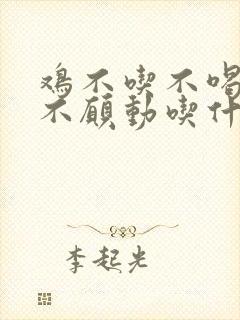 鸡不喫不喝
不愿動喫什
李起光